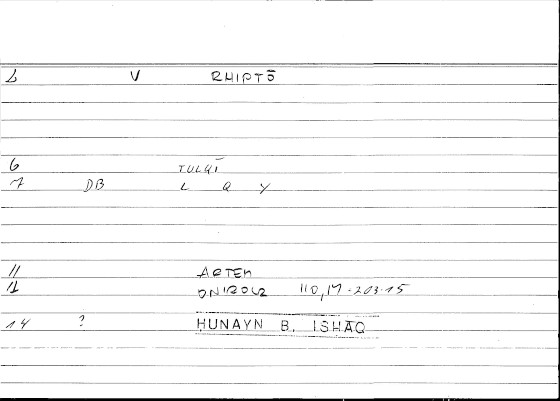 2 V RHIPTŌ
6 TULQĪ
7 DB L Q Y
11 ARTEM
12 ONIROCR 110,17-203.15
14 ? HUNAYN B. ISHĀQ